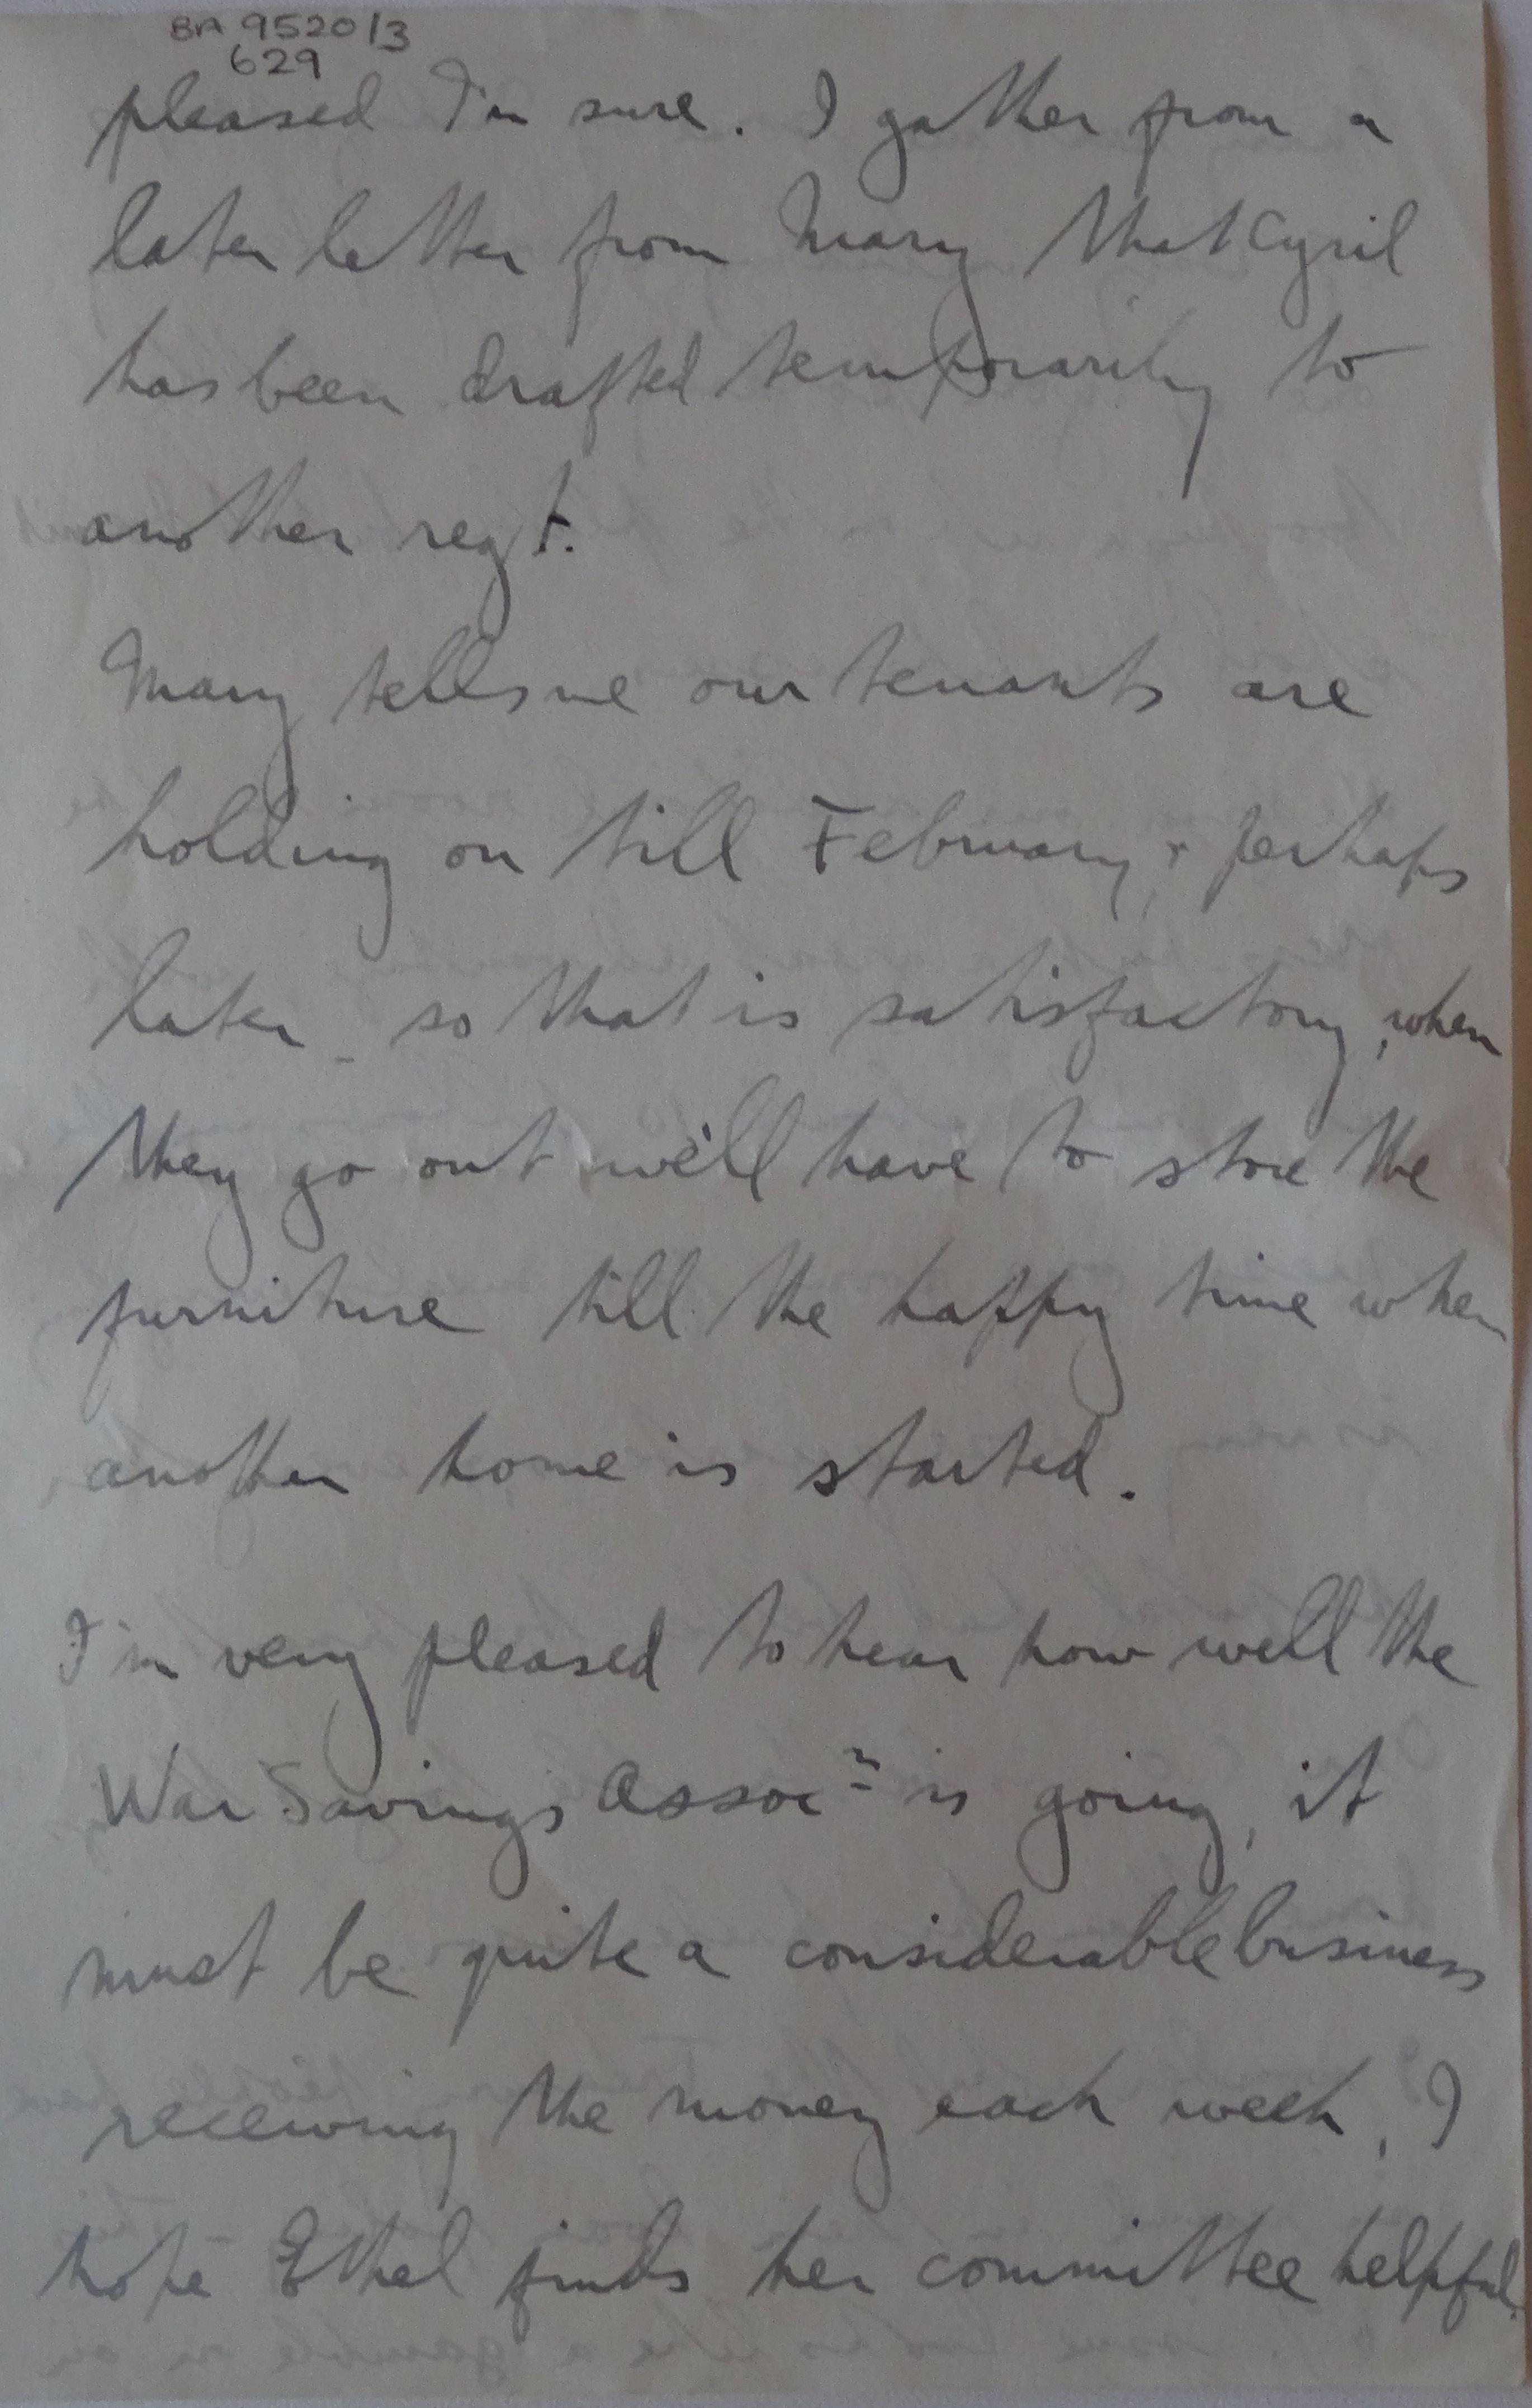 BA 9520/3
629
pleased I'm sure. I gather from a
later letter from Mary that Cyril
has been drafted temporarily to
another regt.
Mary tells me our tenants are
holding on till February, & perhaps
later - so that is satisfactory, when
they go out we'll have to store the
furniture till the happy time when
another home is started.
I'm very pleased to hear how well the
War Savings Assocn is going, it
must be quite a considerable business
receiving the money each week, I
hope Ethel finds her committee helpful.